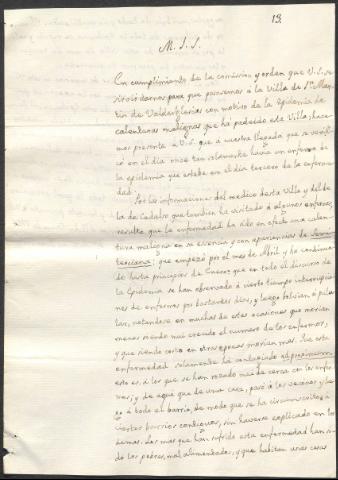 13.
M. I. S.
En cumplimiento de la comision y orden que V. S. se
sirvió darnos para que pasasemos á la Villa de Sn. Mar-
tin de Valdeiglesias con motivo de la Epidemia de
calenturas malignas que há padecido esta Villa; hace-
mos presente á V. S. que a nuestra llegada que se verifi-
có en el dia once tan solamente havia un enfermo de
la epidemia que estaba en el dia tercero de la enferme-
dad.
Por los informaciones del medico desta Villa y del de
la de Cadalso que tambien ha visitado á algunos enfermos,
resulta que la enfermedad ha sido en efecto una calen-
tura maligna en su essencia y con apariencias de
terciana: que empezó por el mes de Abril y ha continua-
do hasta principios de Enero: que en todo el discurso de
la Epidemia se han observado á cierto tiempo interrupcio-
nes de enfermos por bastantes dias, y luego bolvian á pilar
tar, notandose en muchas de estas ocasiones que morian
menos siendo mui crecido el numero de los enfermos,
y que siendo corto en otras epocas morian mas. Que esta
enfermedad solamente ha contagiado
esto es, á los que se han rozado mui de cerca con los enfer-
mos; y de aqui que de una casa, pasó á las vecinas y lue-
go á todo el barrio, de modo que se ha circunscrito á
ciertos barrios contiguos, sin haverse explicado en los
demas. Los mas que han sufrido esta enfermedad han si-
do los pobres, mal alimentados, y que habitan unas casas